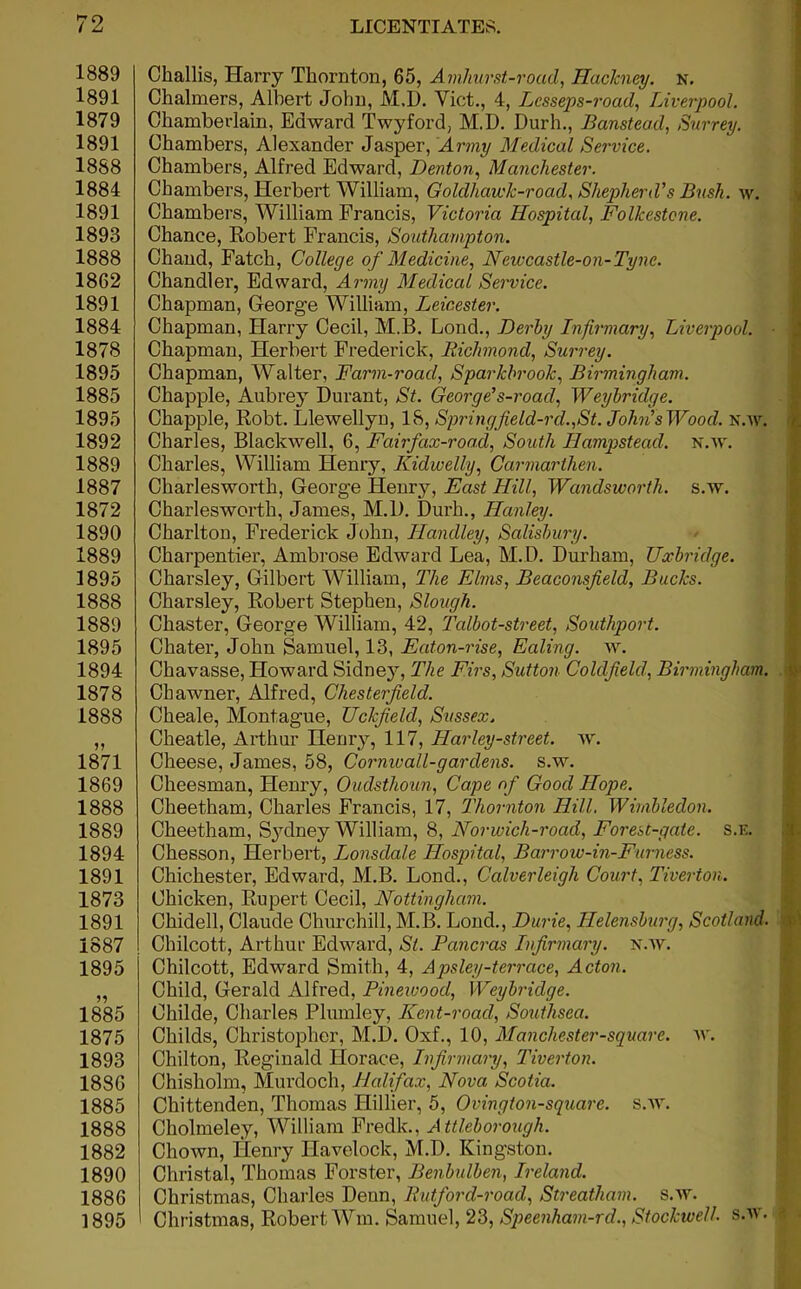 72 LICENTIATES.
1889 Challis, Harry Thornton, 65, Amhurst-road, Hackney. N.
1891 Chalmers, Albert John, M.D. Vict., 4, Lesseps-road, Liverpool.
1879 Chamberlain, Edward Twyford, M.D. Durh., Banstead, Surrey.
1891 Chambers, Alexander Jasper, Army Medical Service.
1888 Chambers, Alfred Edward, Denton, Manchester.
1884 Chambers, Herbert William, Goldhawk-road, Shepherd's Bush. W.
1891 Chambers, William Francis, Victoria Hospital, Folkestone.
1893 Chance, Robert Francis, Southampton.
1888 Chand, Fatch, College of Medicine, Newcastle-on-Tyne.
1862 Chandler, Edward, Army Medical Service.
1891 Chapman, George William, Leicester.
1884 Chapman, Harry Cecil, M.B. Lond., Derby Infirmary, Liverpool.
1878 Chapman, Herbert Frederick, Richmond, Surrey.
1895 Chapman, Walter, Farm-road, Sparkbrook, Birmingham.
1885 Chapple, Aubrey Durant, St. George's-road, Weybridge.
1895 Chapple, Robt. Llewellyn, 18, Springfield-rd., St. John's Wood. N.W.
1892 Charles, Blackwell, 6, Fairfax-road, South Hampstead. N.W.
1889 Charles, William Henry, Kidwelly, Carmarthen.
1887 Charlesworth, George Henry, East Hill, Wandsworth. S.W.
1872 Charlesworth, James, M.D. Durh., Hanley.
1890 Charlton, Frederick John, Handley, Salisbury.
1889 Charpentier, Ambrose Edward Lea, M.D. Durham, Uxbridge.
1895 Charsley, Gilbert William, The Elms, Beaconsfield, Bucks.
1888 Charsley, Robert Stephen, Slough.
1889 Chaster, George William, 42, Talbot-street, Southport.
1895 Chater, John Samuel, 13, Eaton-rise, Ealing. W.
1894 Chavasse, Howard Sidney, The Firs, Sutton Coldfield, Birmingham.
1878 Chawner, Alfred, Chesterfield.
1888 Cheale, Montague, Uckfield, Sussex.
„ Cheatle, Arthur Henry, 117, Harley-street. W.
1871 Cheese, James, 58, Cornwall-gardens. S.W.
1869 Cheesman, Henry, Oudsthoun, Cape of Good Hope.
1888 Cheetham, Charles Francis, 17, Thornton Hill. Wimbledon.
1889 Cheetham, Sydney William, 8, Norwich-road, Forest-gate. S.E.
1894 Chesson, Herbert, Lonsdale Hospital, Barrow-in-Furness.
1891 Chichester, Edward, M.B. Lond., Calverleigh Court, Tiverton.
1873 Chicken, Rupert Cecil, Nottingham.
1891 Chidell, Claude Churchill, M.B. Lond., Durie, Helensburg, Scotland.
1887 Chilcott, Arthur Edward, St. Pancras Infirmary. N.W.
1895 Chilcott, Edward Smith, 4, Apsley-terrace, Acton.
„ Child, Gerald Alfred, Pinewood, Weybridge.
1885 Childe, Charles Plumley, Kent-road, Southsea.
1875 Childs, Christopher, M.D. Oxf., 10, Manchester-square. W.
1893 Chilton, Reginald Horace, Infirmary, Tiverton.
1886 Chisholm, Murdoch, Halifax, Nova Scotia.
1885 Chittenden, Thomas Hillier, 5, Ovington-square. S.W.
1888 Cholmeley, William Fredk., Attleborough.
1882 Chown, Henry Havelock, M.D. Kingston.
1890 Christal, Thomas Forster, Benbulben, Ireland.
1886 Christmas, Charles Denn, Rutford-road, Streatham. S.W.
1895 Christmas, Robert Wm. Samuel, 23, Speenham-rd., Stockwell. S.W.